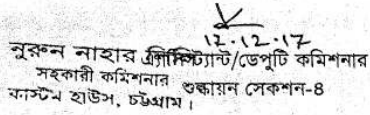 12.12.17
নুরুন নাহার এসিস্ট্যান্ট/ডেপুটি কমিশনার
সহকারী কমিশনার শুল্কায়ন সেকশন-৪
কাস্টম হাউস, চট্টগ্রাম।